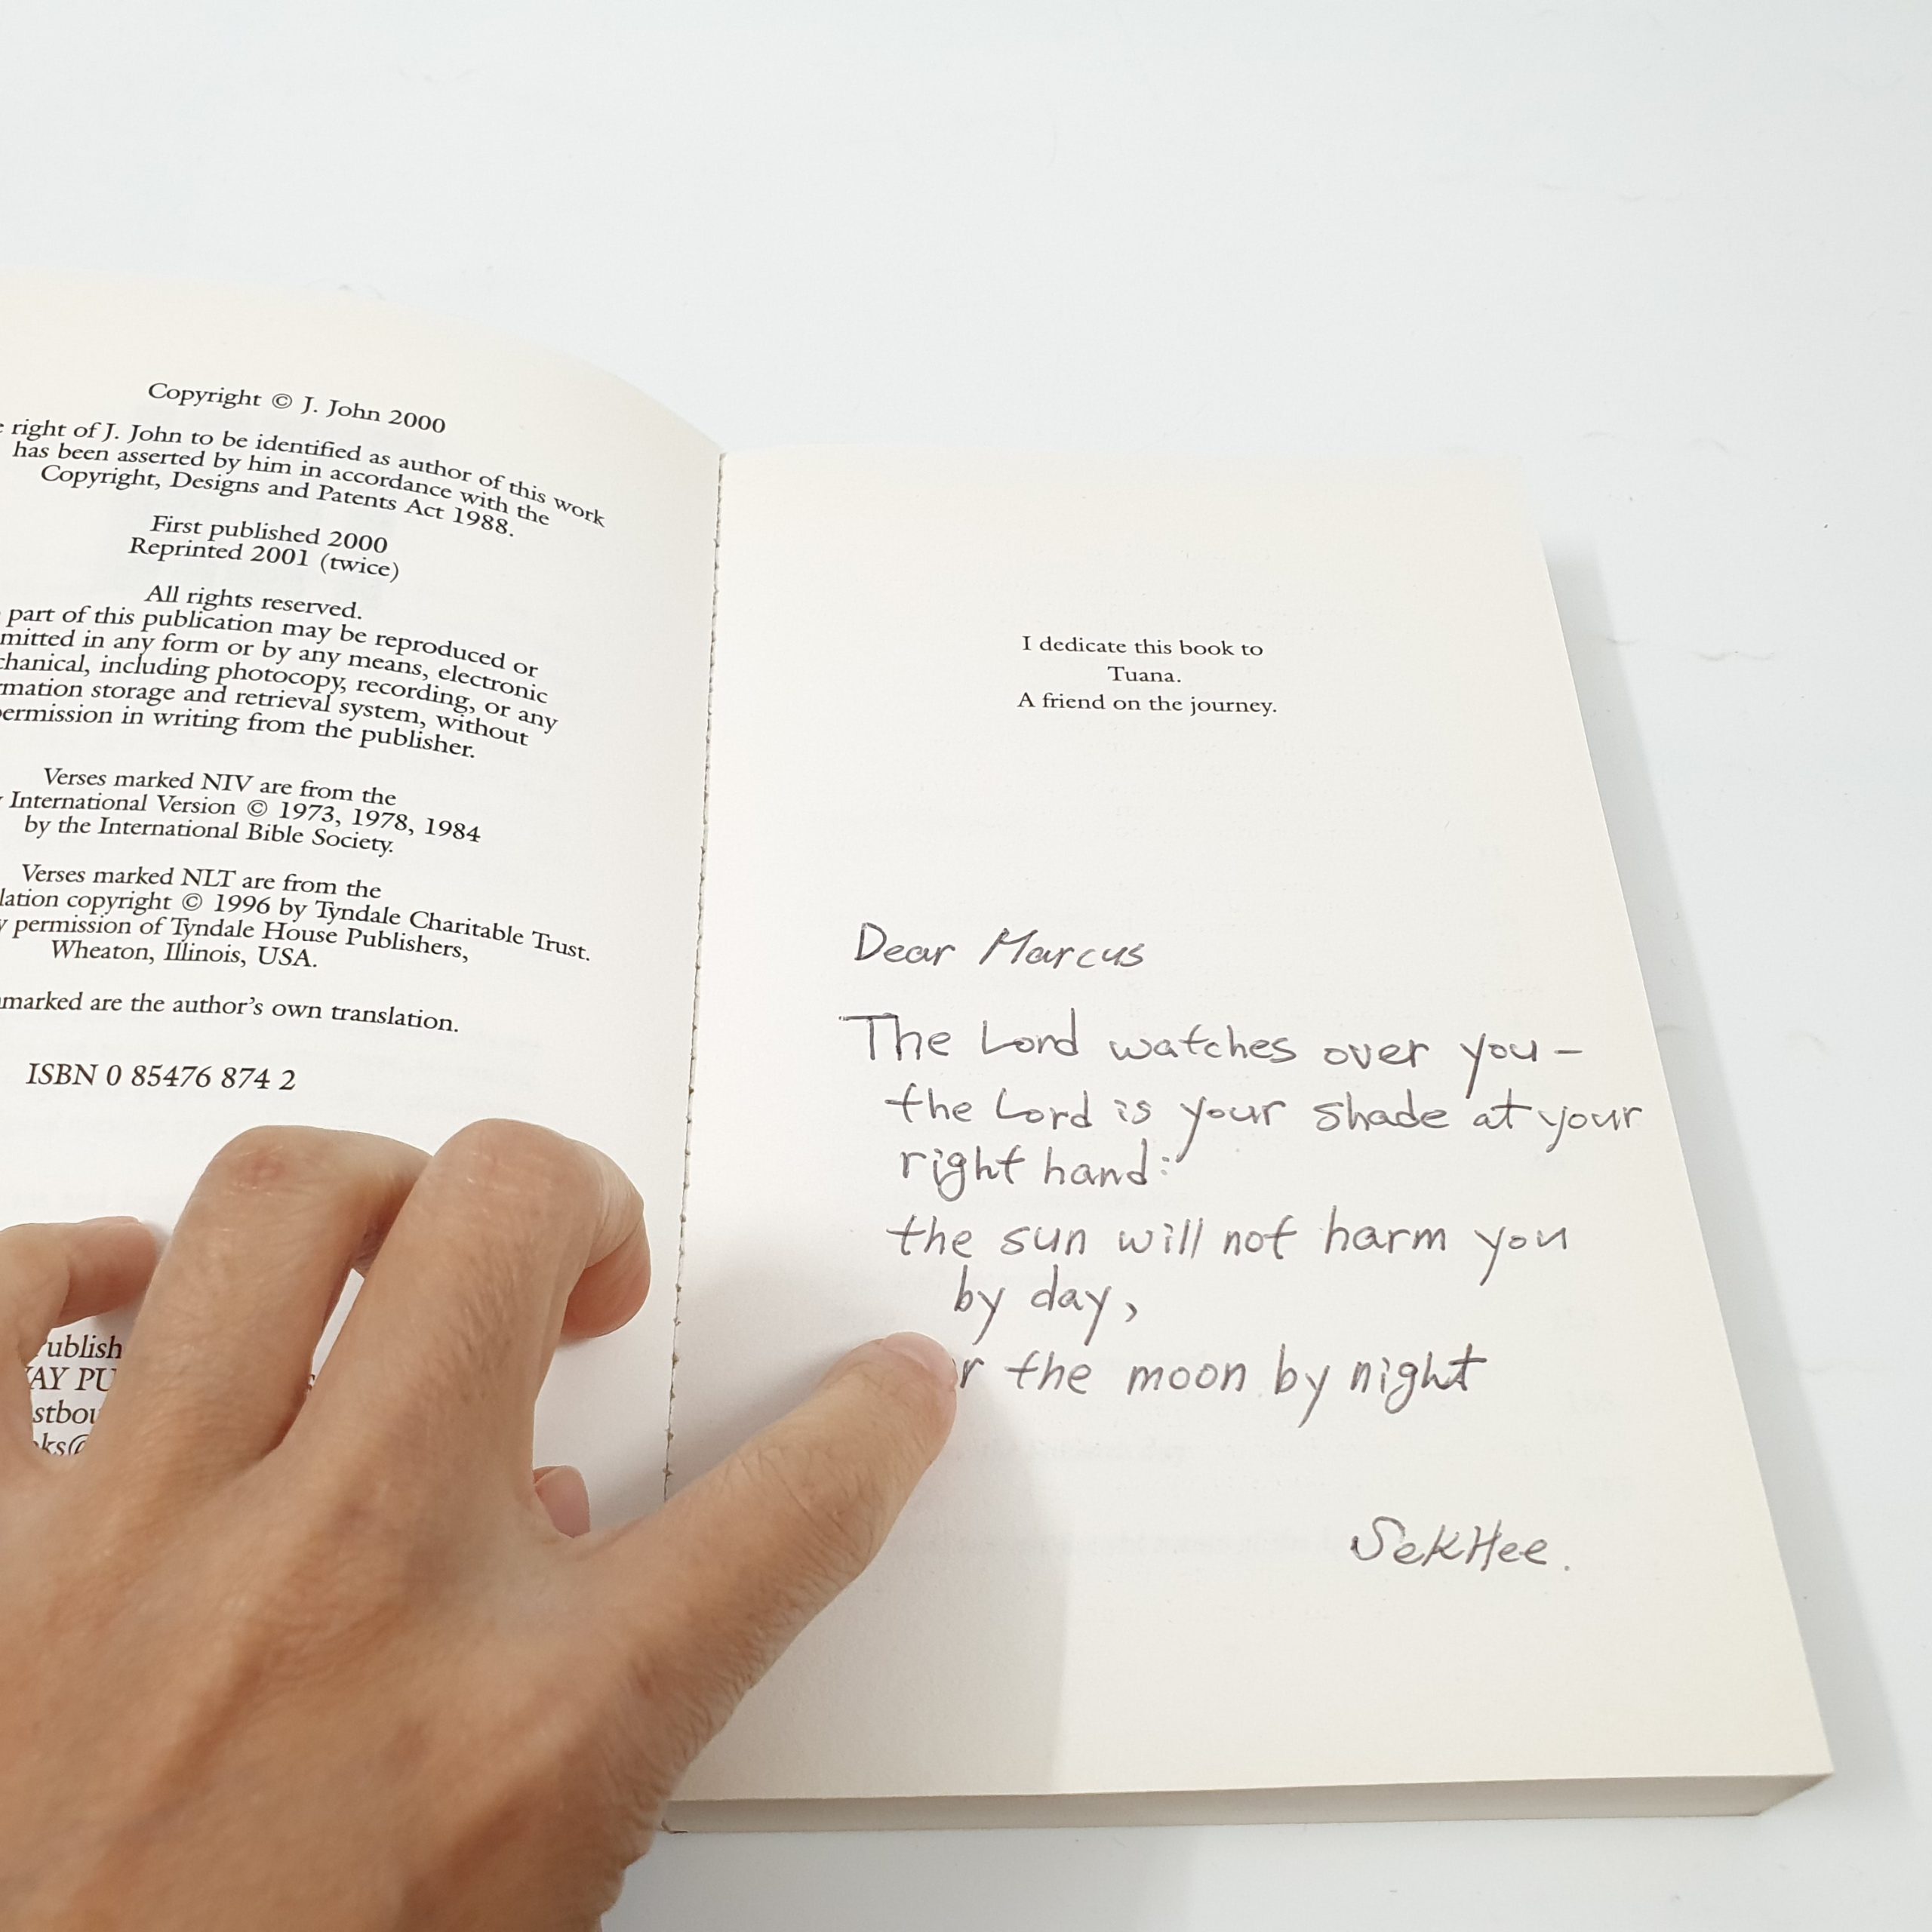 Copyright © J. John 2000
right of J. John to be identified as author of this work
has been asserted by him in accordance with the
Copyright, Designs and Patents Act 1988.
First published 2000
Reprinted 2001 (twice)
All rights reserved.
part of this publication may be reproduced or
mitted in any form or by any means, electronic
chanical, including photocopy, recording, or any
rmation storage and retrieval system, without
permission in writing from the publisher.
Verses marked NIV are from the
International Version © 1973, 1978, 1984
by the International Bible Society.
Verses marked NLT are from the
lation copyright © 1996 by Tyndale Charitable Trust.
permission of Tyndale House Publishers,
Wheaton, Illinois, USA.
marked are the author's own translation.
ISBN 0 85476 874 2
ublish
AY PU
stbou
ks@
I dedicate this book to
Tuana.
A friend on the journey.
Dear Marcus
The Lord watches over you –
the Lord is your shade at your
right hand:
the sun will not harm you
by day,
r the moon by night
SekHee.